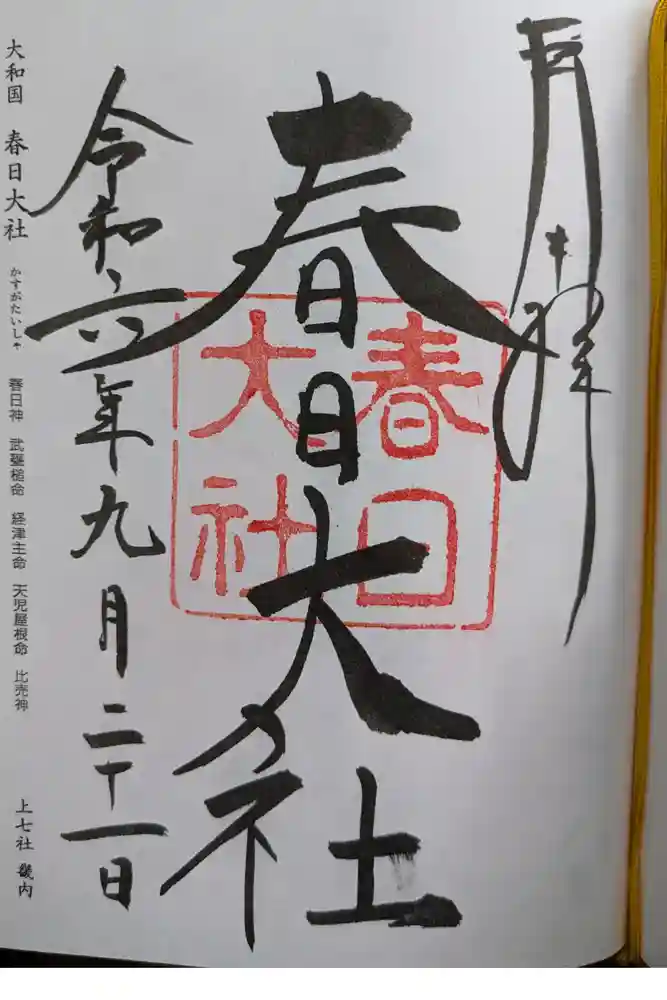 奉拝
春日大社
春日
大社
令和六年九月二十一日
大和国 春日大社 かすがたいしゃ 春日神 武甕槌命 経津主命 天児屋根命 比売神 上七社 畿内